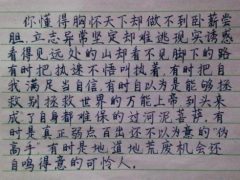 你懂得胸怀天下却做不到卧薪尝
胆,立志异常坚定却难逃现实诱惑
看得见远处的山却看不见脚下的路
有时把执迷不悟叫执着,有时把自
我满足当自信,有时自以为是能够拯
救别拯救世界的万能上帝到头来
成了自身都难保的过河泥菩萨,有
时是真正弱点百出还不以为意的“伪
高手”有时是地道地荒废机会还
自鸣得意的可怜人.